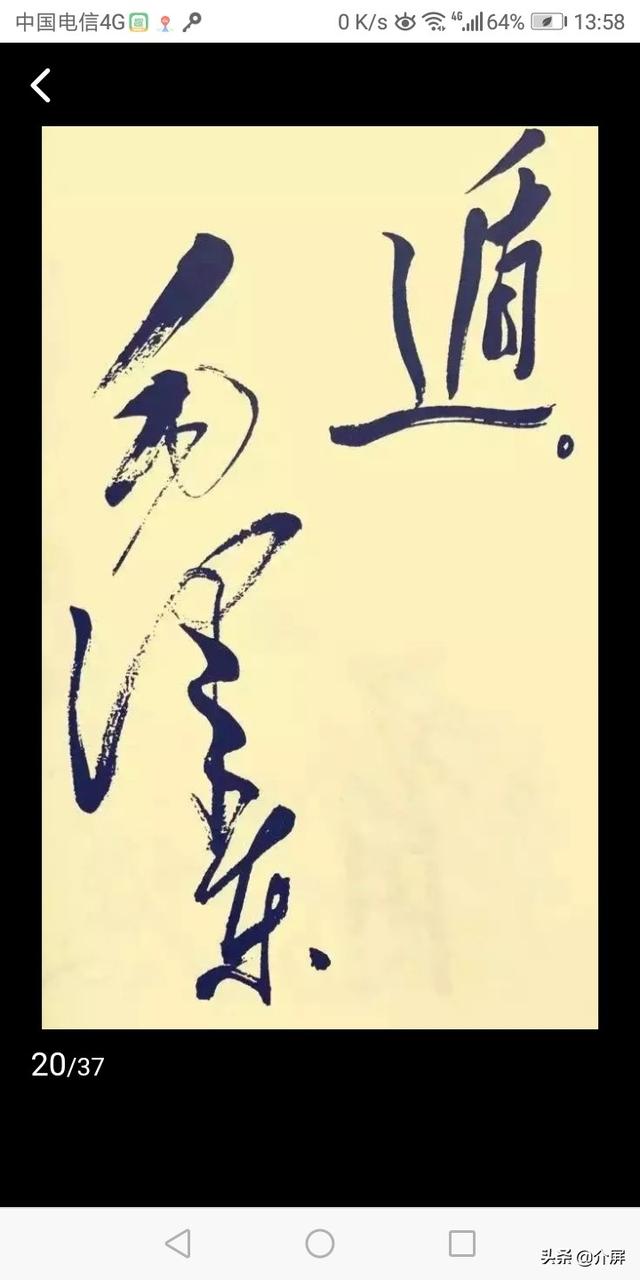 中国电信4G 0 K/s 4G 64% 13:58
遁。
毛泽东
20/37
头条 @介屏